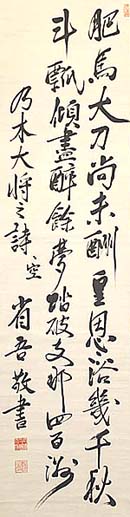 肥馬大刀尚未酬皇恩浴幾千秋
斗瓢傾盡醉餘夢踏破支那四百洲
乃木大将之詩空
省吾敬書